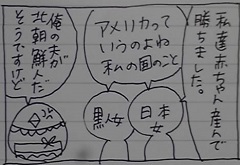 私達赤ちゃん産んで
勝ちました。
アメリカって
いうのよね
私の国のこと
日本
女
黒人女
俺の夫が
北朝鮮人だ
そうですけど